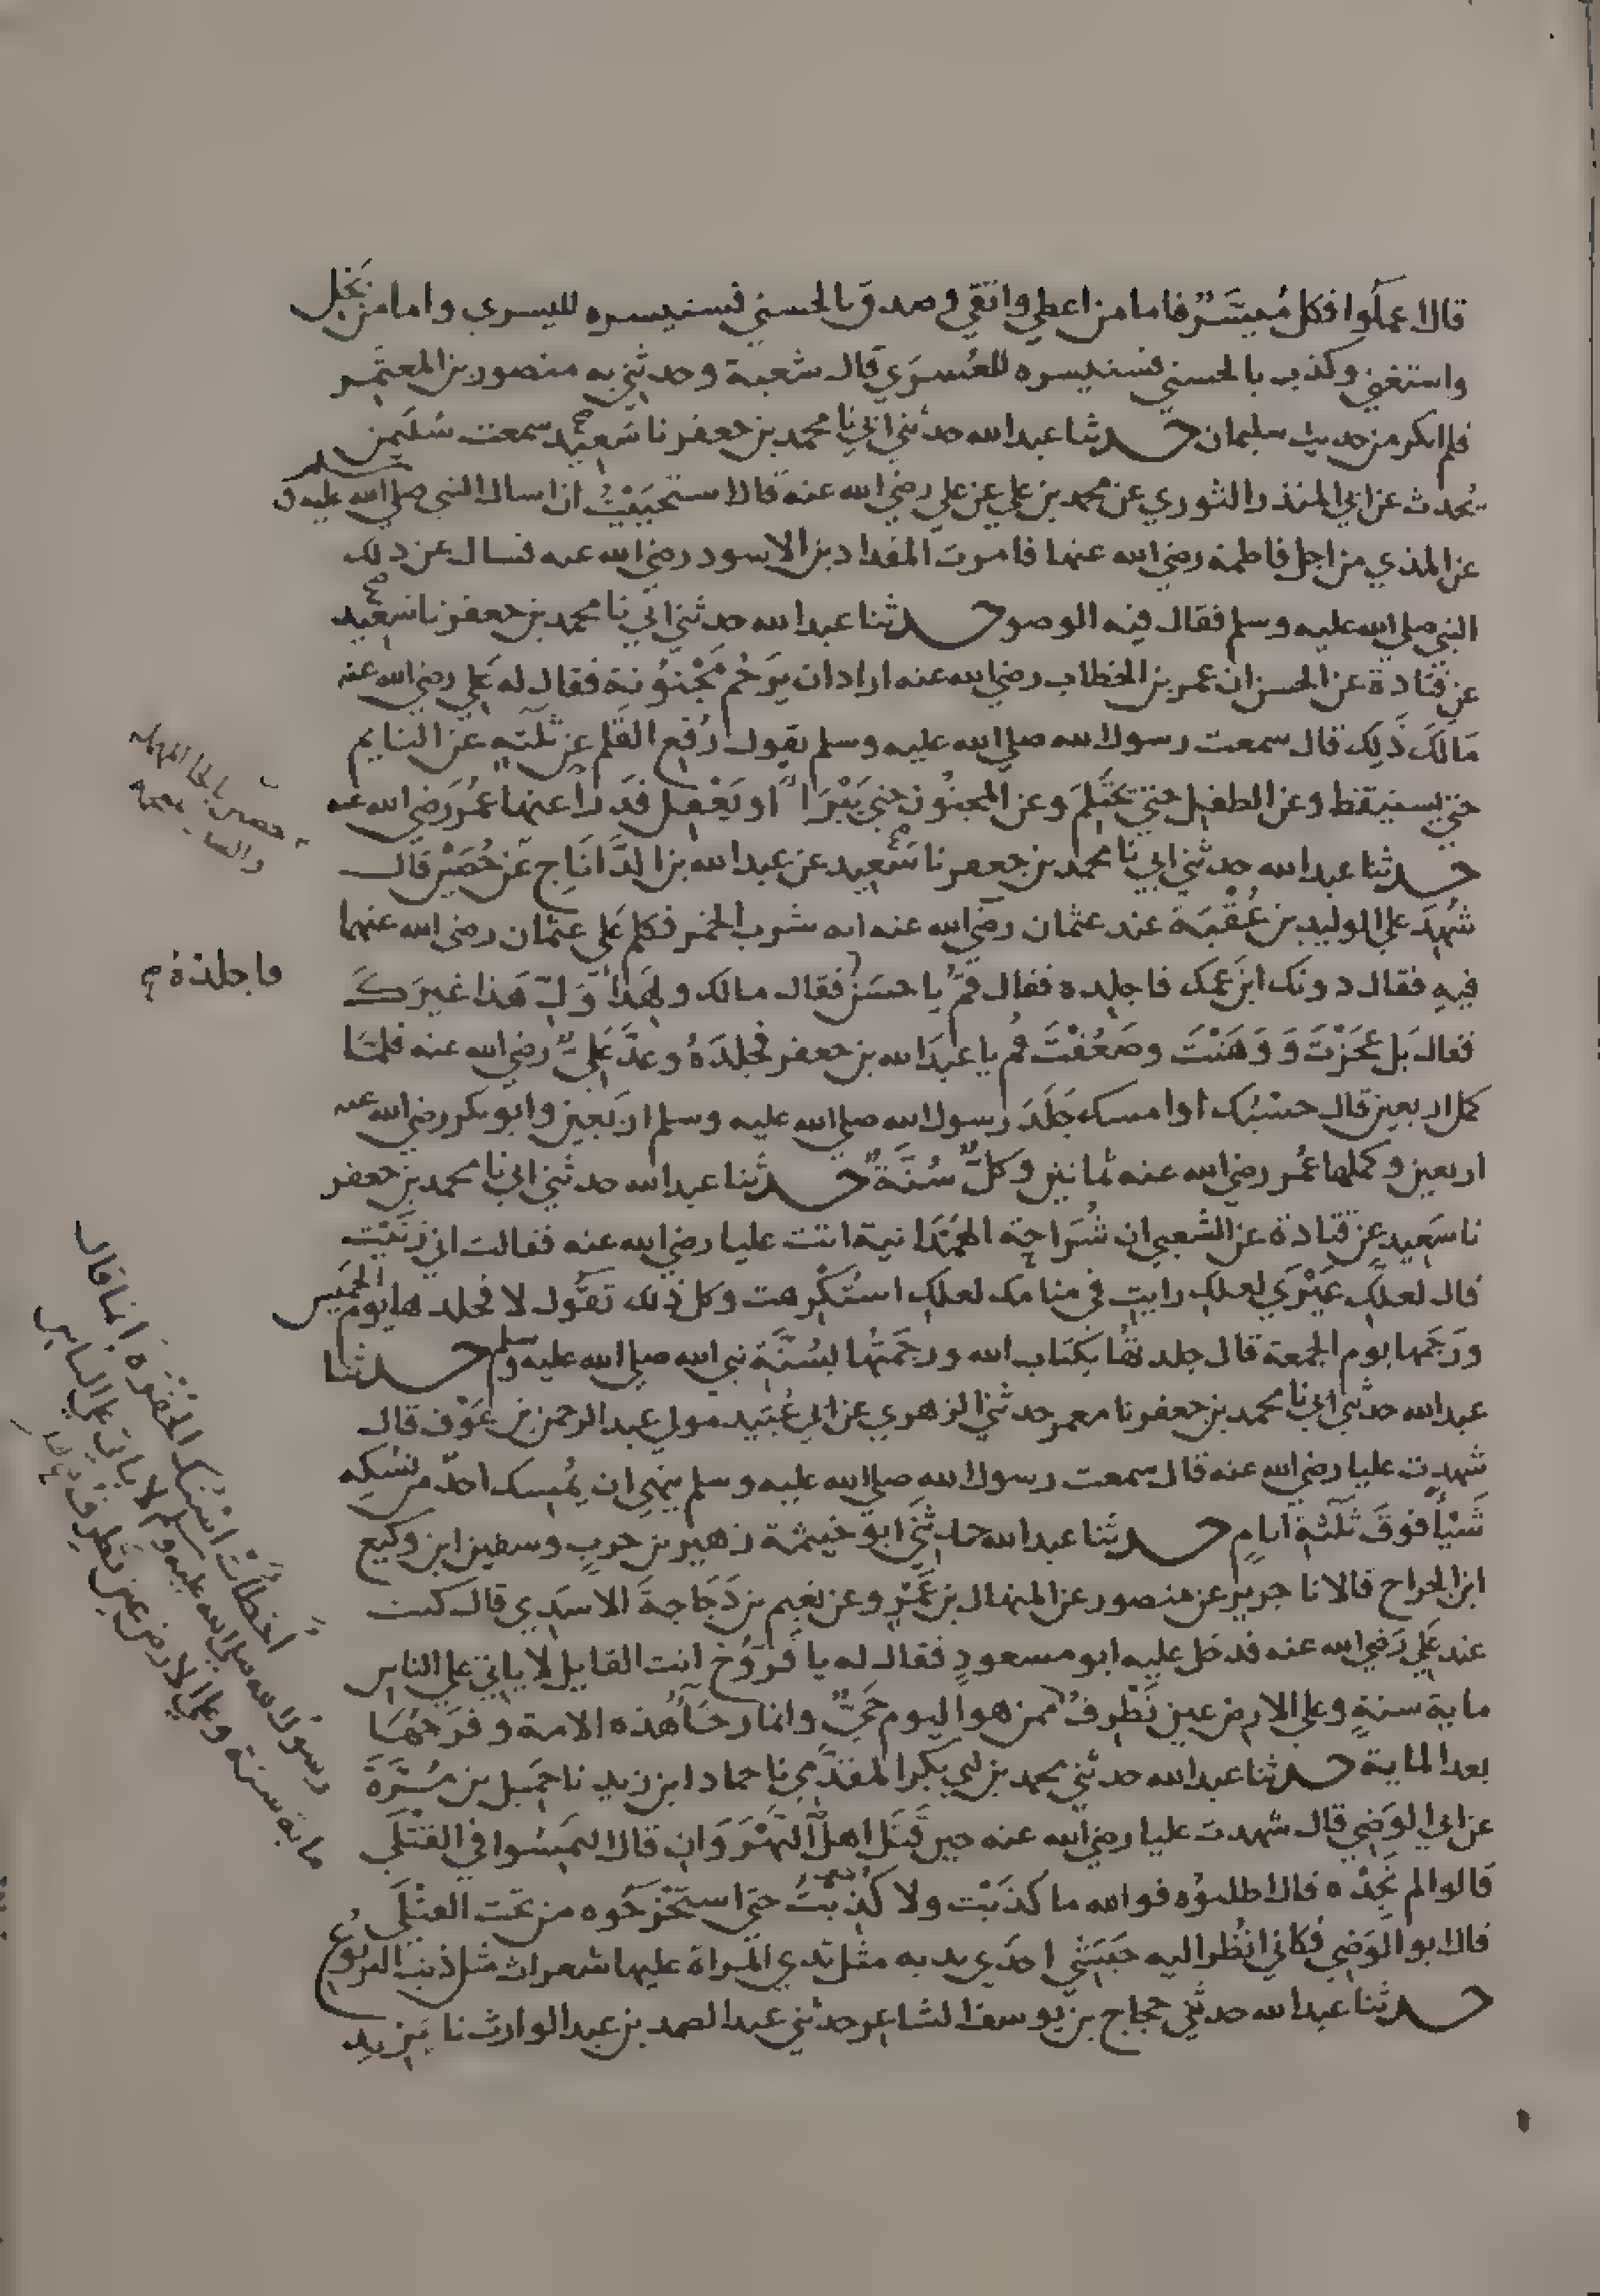 قال اعملوا فكل مُيَسَّرٌ فاما من اعطي واتقي وصدق بالحسني فسنيسره لليسري واما من بَخِل
واستغني وكذب بالحسني فسنيسره للعُسرَي قال شعبة وحدثني به منصور بن المعتَمِر
فلم انكر من حديث سليمان حدثنا عبد الله حدثني ابي نا محمد بن جعفر نا سَعيد سمعت سُليمن
يُحدث عن ابي المنذر الثوري عن محمد بن علي عن علي رضي الله عنه قال استحيَيْتُ ان اسال النبي صلي الله عليه وسلم
عن المذي من اجل فاطمه رضي الله عنها فامرت المقداد بن الاسود رضي الله عنه فسال عن ذلك
النبي صلي الله عليه وسلم فقال فيه الوضو حدثنا عبد الله حدثني ابي نا محمد بن جعفر نا سَعيد
عن قتادة عن الحسن ان عمر بن الخطاب رضي الله عنه اراد ان يَرجُم مَجْنُونة فقال له عَلي رضي الله عنه
مَالَكَ ذَلِك قال سمعت رسول الله صلي الله عليه وسلم يقول رُفِعَ القلم عن ثلثه عن النايم
حتي يستيقظ وعن الطفل حتي يحتَلِمَ وعن المجنُون حتي يَبْرَا او يَعْقِل فَدَرَأ عنها عُمَر رضي الله عنه
حدثنا عبد الله حدثني ابي نا محمد بن جعفر نا سَعيد عن عبد الله بن الدَّانَاج عن حُضَيْن قال
شُهِدَ علي الوليد بن عُقْبَة عند عثمان رضي الله عنه انه شرب الخمر فكلم عَلي عثمان رضي الله عنهما
فيه فقال دونك ابن عمك فاجلده فقال قُمْ يا حسَن فقال مالك ولهَذا وَلِّ هَذا غيرَكَ
فقال بَل عَجَزْتَ وَوَهَنْتَ وضَعُفْتَ قُم يا عبدَ الله بن جعفر فجلدَهُ وعَدَّ عَلِيٌّ رضي الله عنه فلما
كمل اربعين قال حسْبُك او امسك جَلَدَ رسول الله صلي الله عليه وسلم اربَعين وابو بكر رضي الله عنه
اربعين وكملها عُمر رضي الله عنه ثمانين وكلٌّ سُنَّةٌ حدثنا عبد الله حدثني ابي نا محمد بن جعفر
نا سَعيد عن قتادة عن الشعبي ان شُرَاحة الهَمْدَانية اتت عليا رضي الله عنه فقالت اني زنَيْت
قال لعلكِ غَيْرَي لعلك رايتِ في منامك لعلكِ استُكْرهت وكل ذلك تَقُول لا فجلدها يوم الخميس
ورَجَمها يوم الجمعة قال جلدتُها بكتاب الله ورجَمتُها بسُنَّة نبي الله صلي الله عليه وسلم حدثنا
عبد الله حدثني ابي نا محمد بن جعفر نا معمر حدثني الزهري عن ابي عُبَيد مولي عبد الرحمن بن عَوْف قال
شهدت عليا رضي الله عنه قال سمعت رسول الله صلي الله عليه وسلم ينهي ان يُمسِك احدٌ من نسُكِه
شَيْأً فوقَ ثَلَثةِ ايامٍ حدثنا عبد الله حدثني ابو خيثمة زهير بن حرب وسفين ابن وكيع
ابن الجراح قالا نا جرير عن منصور عن المنهال بن عَمْرٍو عن نعيم بن دَجَاجةَ الاسَدِي قال كنت
عند علي رَضي الله عنه فدخل عليه ابو مسعودٍ فقال له يا فَرُّوخُ انت القايل لا ياتي علي الناس
ماية سنةٍ وعلي الارض عين تَطْرِفُ ممن هو اليوم حَيٌّ وانما رخَآ هذه الامة وفَرَجُهَا
بعد الماية حدثنا عبد الله حدثني محمد بن ابي بكر المقدَّمِي نا حماد ابن زيد نا جَميل بن مُرَّةَ
عن ابي الوَضِي قال شهدت عليا رضي الله عنه حين قَتَل اهلَ النَّهْرَوَان قال التمِسُوا في القَتْلَي
قالوا لم نَجِدْه قال اطلبوُه فوالله ما كذَبْت ولا كُذِبْتُ حتي استَخْرَجُوه من تحت القَتْلَي
قال ابو الوَضِي فكاني انظُر اليه حَبَشِي احدَي يديه مثل ثدي المراة عليها شعرات مثل ذنب اليربُوعُ
حدثنا عبد الله حدثني حجاج بن يوسف الشاعر حدثني عبد الصمد بن عبد الوارث نا يَزيد
حضين بالحا المهمله
والضاد معجمة
فاجلدْهُ
اخطأَتْ اسْتُك الحُفْرَه انما قال
رسول الله صلي الله عليه وسلم لا ياتي علي الناس
ماية سنة وعلي الارض عين تَطرِفُ